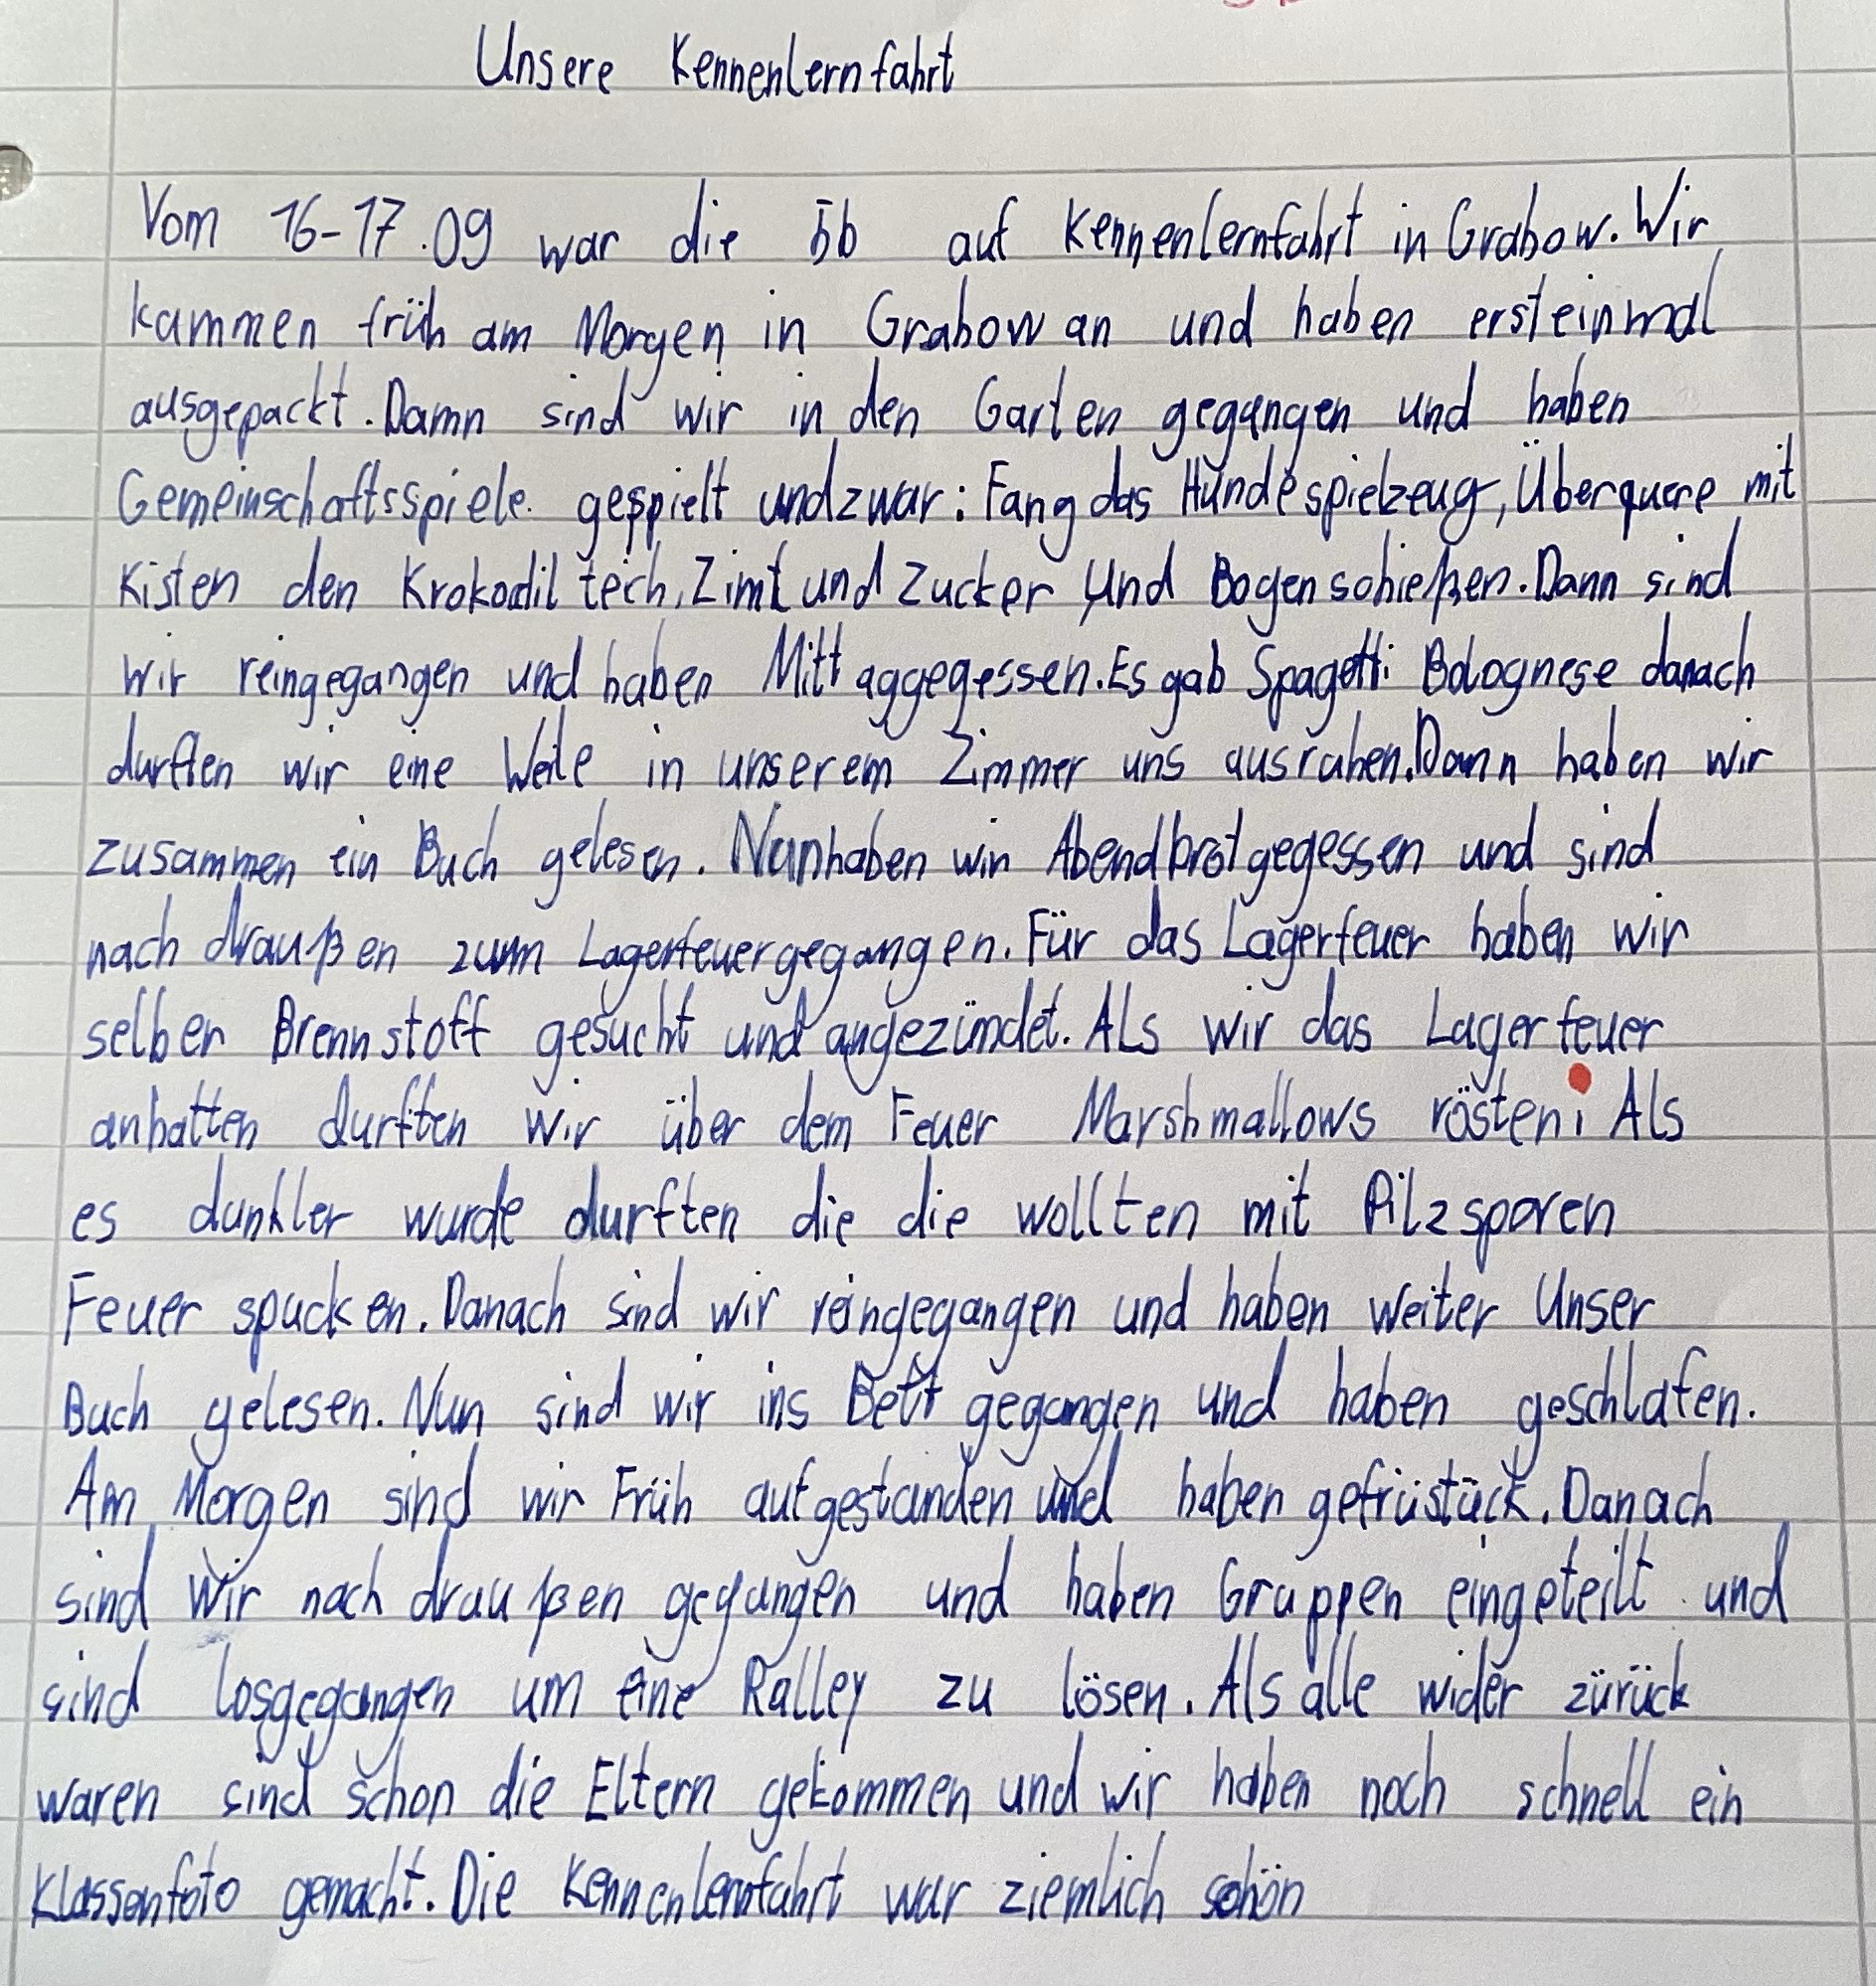 Unsere Kennenlernfahrt
Vom 16-17.09 war die 5b auf Kennenlernfahrt in Grabow. Wir
kammen früh am Morgen in Grabow an und haben ersteinmal
ausgepackt. Dann sind wir in den Garten gegangen und haben
Gemeinschaftsspiele gespielt undzwar: Fang das Hundespielzeug, Überquere mit
Kisten den Krokodil teich, Zimt und Zucker und Bogenschießen. Dann sind
wir reingegangen und haben Mittaggegessen. Es gab Spagetti Bolognese danach
durften wir eine Weile in unserem Zimmer uns ausruhen. Dann haben wir
zusammen ein Buch gelesen. Nun haben wir Abendbrot gegessen und sind
nach draußen zum Lagerfeuer gegangen. Für das Lagerfeuer haben wir
selber Brennstoff gesucht und angezündet. Als wir das Lagerfeuer
anhatten durften wir über dem Feuer Marshmallows rösten. Als
es dunkler wurde durften die die wollten mit Pilzsporen
Feuer spucken. Danach sind wir reingegangen und haben weiter Unser
Buch gelesen. Nun sind wir ins Bett gegangen und haben geschlafen.
Am Morgen sind wir Früh aufgestanden und haben gefrüstück. Danach
sind wir nach draußen gegangen und haben Gruppen eingeteilt und
sind losgegangen um eine Ralley zu lösen. Als alle wider zürück
waren sind schon die Eltern gekommen und wir haben noch schnell ein
Klassenfoto gemacht. Die Kennenlernfahrt war ziemlich schön